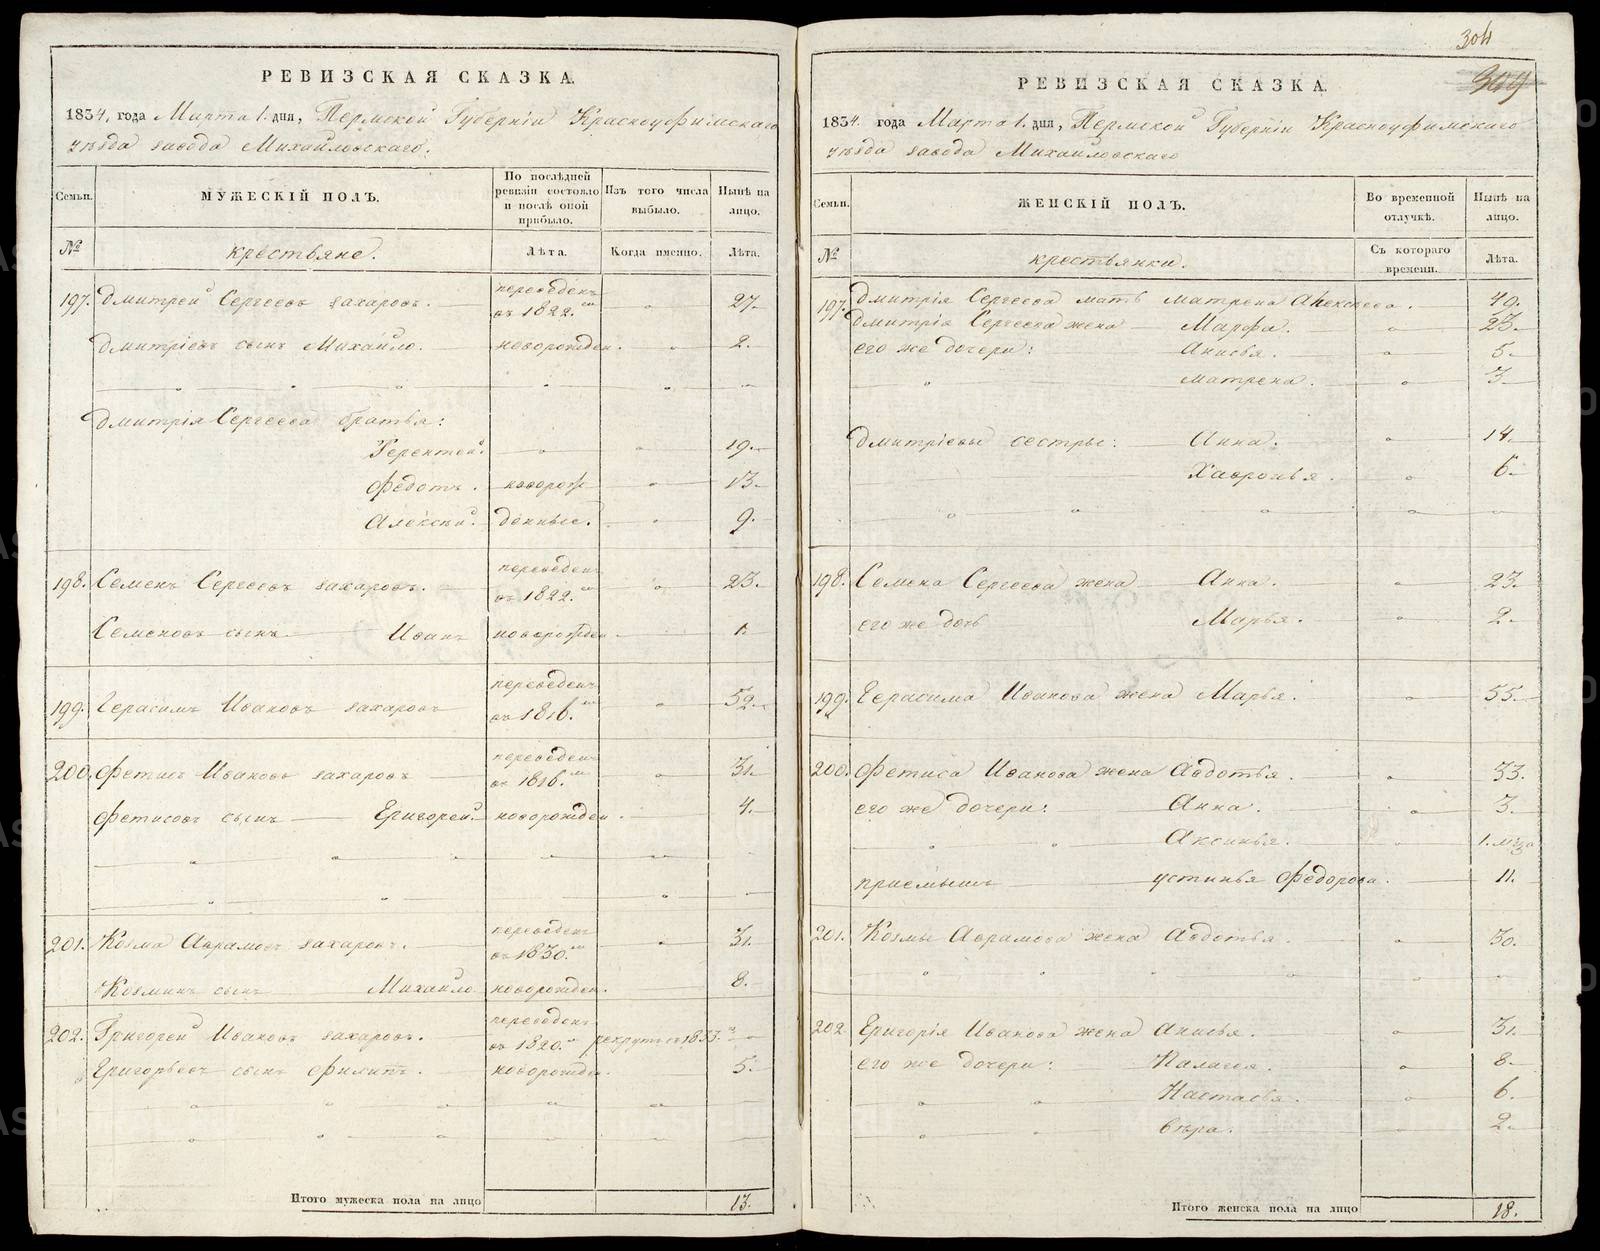 РЕВИЗСКАЯ СКАЗКА.
1834. года Марта 1. дня, Пермской Губерніи Красноуфимскаго
уѣзда завода Михайловскаго.
Семьи. МУЖЕСКІЙ ПОЛЪ. По послѣдней ревизіи состояло и послѣ оной прибыло. Изъ того числа выбыло. Нынѣ на лицо.
№ крестьяне. Лѣта. Когда именно. Лѣта.
197. Дмитрей Сергеевъ Захаровъ. переведенъ въ 1822.мъ 27.
Дмитріевъ сынъ Михайло. новорожден. 2.
Дмитрія Сергеева братья:
Терентей. 19.
Федотъ. новорож 13.
Алексей. денные. 9.
198. Семенъ Сергеевъ Захаровъ. переведенъ въ 1822.мъ 23.
Семеновъ сынъ Иванъ новорожден 1.
199. Герасимъ Ивановъ Захаровъ переведенъ въ 1816.мъ 52.
200. Фетисъ Ивановъ Захаровъ переведен въ 1816.мъ 31.
Фетисовъ сынъ Григорей. новорожден. 4.
201. Козма Аврамовъ Захаровъ. переведенъ въ 1830.мъ 31.
Козминъ сынъ Михайло новорожден. 8.
202. Григорей Ивановъ Захаровъ. переведенъ въ 1820.мъ рекрутъ въ 1833.
Григорьевъ сынъ Филипъ. новорожден. 5.
Итого мужеска пола на лицо 13.
304
309
РЕВИЗСКАЯ СКАЗКА.
1834. года Марта 1. дня, Пермской Губерніи Красноуфимскаго
уѣзда завода Михайловскаго
Семьи. ЖЕНСКІЙ ПОЛЪ. Во временной отлучкѣ. Нынѣ на лицо.
№ крестьянки. Съ котораго времени. Лѣта.
197. Дмитрія Сергеева мать Матрена Алексеева. 49.
Дмитрія Сергеева жена Марфа. 23.
его же дочери: Анисья. 5.
Матрена. 3.
Дмитріевы сестры: Анна. 14.
Хавронья. 6.
198. Семена Сергеева жена Анна. 23.
его же дочь Марья. 2.
199. Герасима Иванова жена Марья. 55.
200. Фетиса Иванова жена Авдотья. 33.
его же дочери: Анна. 3.
Аксинья. 1. мца
приемышъ Устинья Федорова. 11.
201. Козмы Аврамова жена Авдотья. 30.
202. Григорія Иванова жена Анисья. 31.
его же дочери: Палагея. 8.
Настасья. 6.
Вѣра. 2.
Итого женска пола на лицо 18.